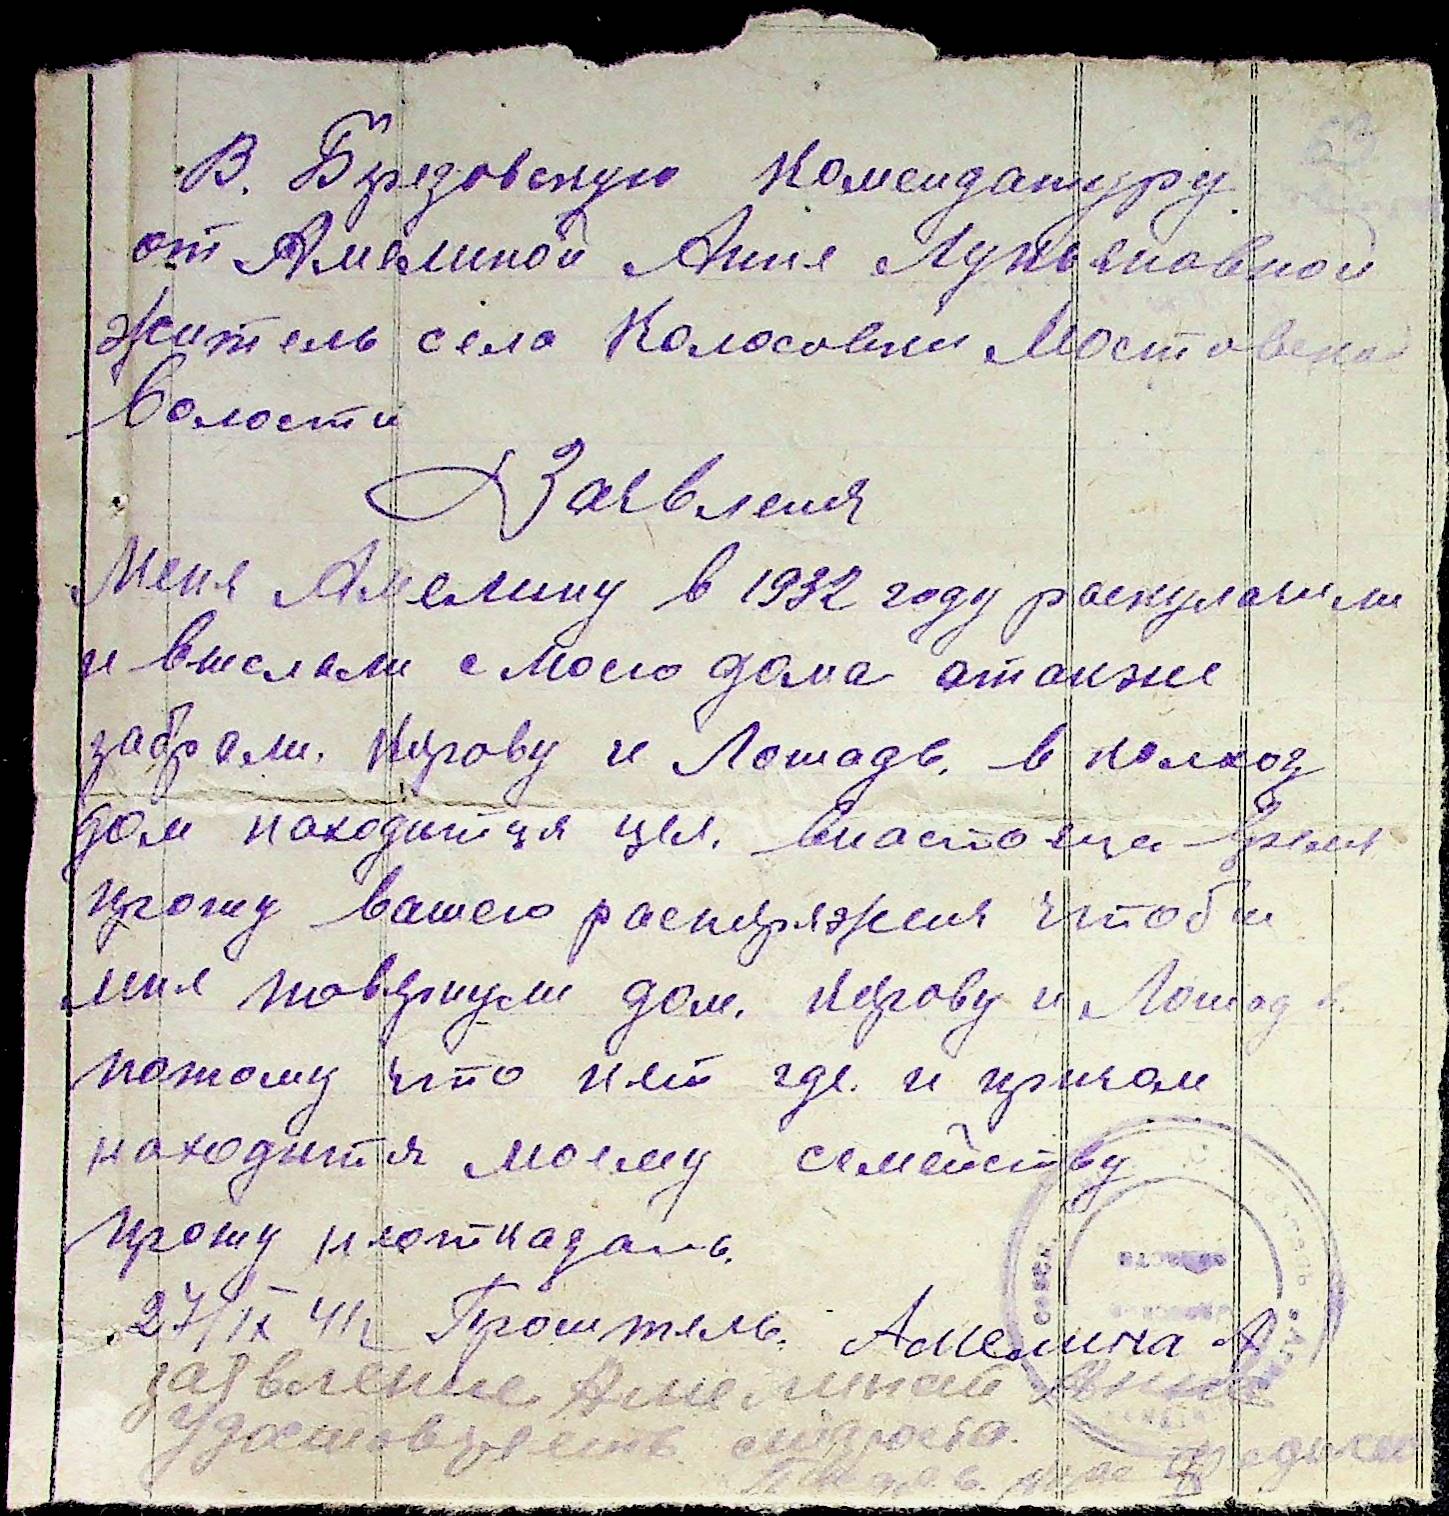 В. Березовскую Комендатуру
от Амелиной Анне Лукьяновной
житель села Колосовки Мостовской
Волости
Заявленя
Меня Амелину в 1932 году раскулачили
и выслали с моего дома атакже
забрали. Корову и Лошадь. в колхоз
дом находится цел. внастояще время
прошу вашего распоряженя чтобы
мня повернули дом. Корову и Лошадь.
потому что нет где. и причом
находится моему семейству
прошу неотказать.
27/IX 41г Проситель. Амелина А
заявление Амелиной Анны
Удостоверяет староста